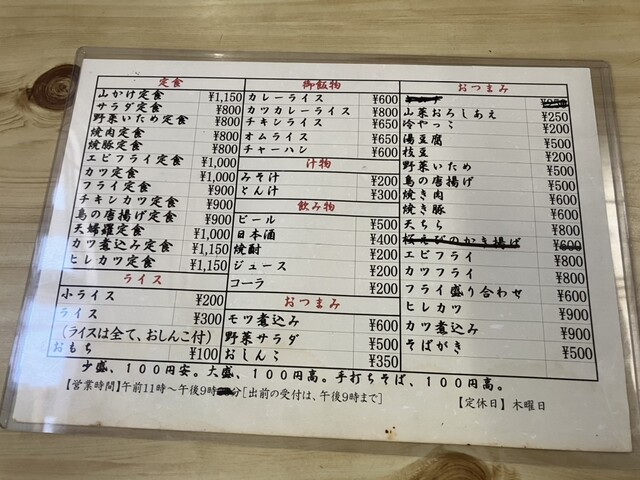 定食
山かけ定食 ¥1,150
サラダ定食 ¥800
野菜いため定食 ¥800
焼肉定食 ¥800
焼豚定食 ¥800
エビフライ定食 ¥1,000
カツ定食 ¥1,000
フライ定食 ¥900
チキンカツ定食 ¥900
鳥の唐揚げ定食 ¥900
天婦羅定食 ¥1,000
カツ煮込み定食 ¥1,150
ヒレカツ定食 ¥1,150
ライス
小ライス ¥200
ライス ¥300
(ライスは全て、おしんこ付)
おもち ¥100
御飯物
カレーライス ¥600
カツカレーライス ¥800
チキンライス ¥650
オムライス ¥650
チャーハン ¥650
汁物
みそ汁 ¥200
とん汁 ¥300
飲み物
ビール ¥500
日本酒 ¥400
焼酎 ¥400
ジュース ¥200
コーラ ¥200
おつまみ
モツ煮込み ¥600
野菜サラダ ¥500
おしんこ ¥350
おつまみ
山菜おろしあえ ¥250
冷やっこ ¥200
湯豆腐 ¥500
枝豆 ¥200
野菜いため ¥500
鳥の唐揚げ ¥500
焼き肉 ¥600
焼き豚 ¥600
天ちら ¥800
桜えびのかき揚げ ¥600
エビフライ ¥800
カツフライ ¥800
フライ盛り合わせ ¥600
ヒレカツ ¥900
カツ煮込み ¥900
そばがき ¥500
少盛、100円安。大盛、100円高。手打ちそば、100円高。
【営業時間】午前11時～午後9時 分[出前の受付は、午後9時まで] 【定休日】木曜日